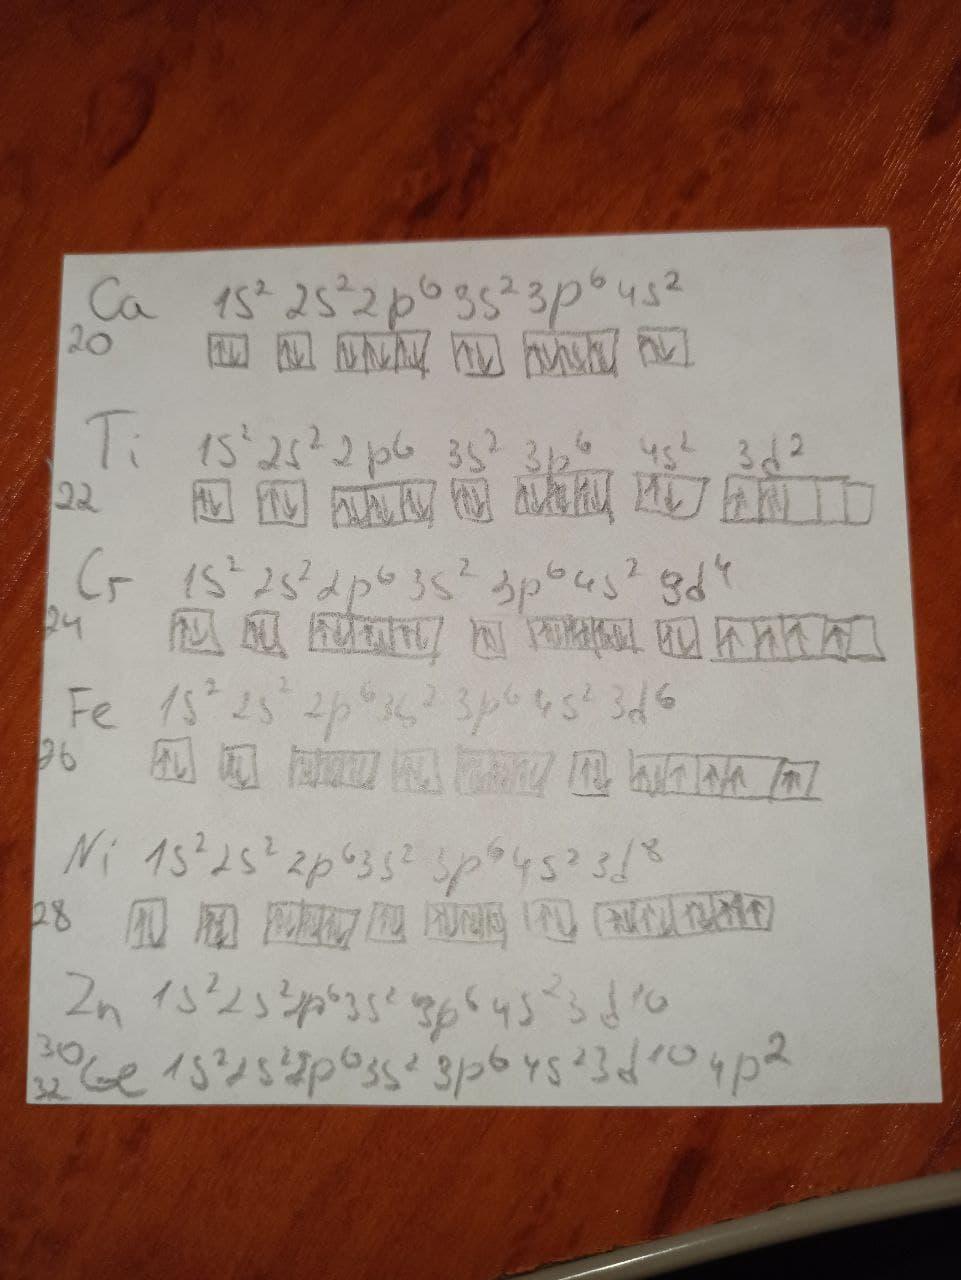 Ca 1s² 2s² 2p⁶ 3s² 3p⁶ 4s²
20
↑↓ ↑↓ ↑↓↑↓↑↓ ↑↓ ↑↓↑↓↑↓ ↑↓
Ti 1s² 2s² 2p⁶ 3s² 3p⁶ 4s² 3d²
22
Cr 1s² 2s² 2p⁶ 3s² 3p⁶ 4s² 3d⁴
24
Fe 1s² 2s² 2p⁶ 3s² 3p⁶ 4s² 3d⁶
26
Ni 1s² 2s² 2p⁶ 3s² 3p⁶ 4s² 3d⁸
28
Zn 1s² 2s² 2p⁶ 3s² 3p⁶ 4s² 3d¹⁰
30
Ge 1s² 2s² 2p⁶ 3s² 3p⁶ 4s² 3d¹⁰ 4p²
32